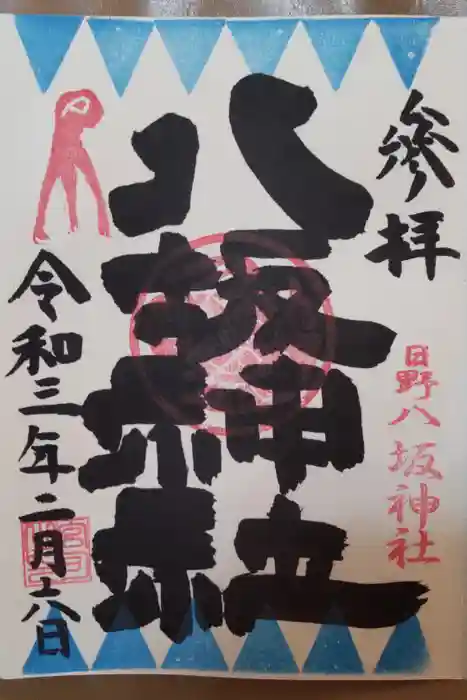 参拝
日野八坂神社
八坂神社
令和三年二月十八日